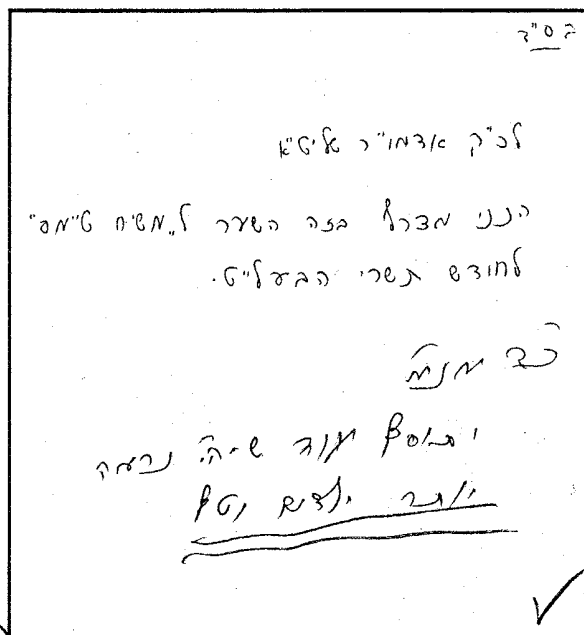 בס"ד
לכ"ק אדמו"ר שליט"א
הנני מצרף בזה השער ל"משיח טיימס"
לחודש תשרי הבעל"ט.
מנם
ותוסף עוד שיהי' נראה
יותר ילדים וטף